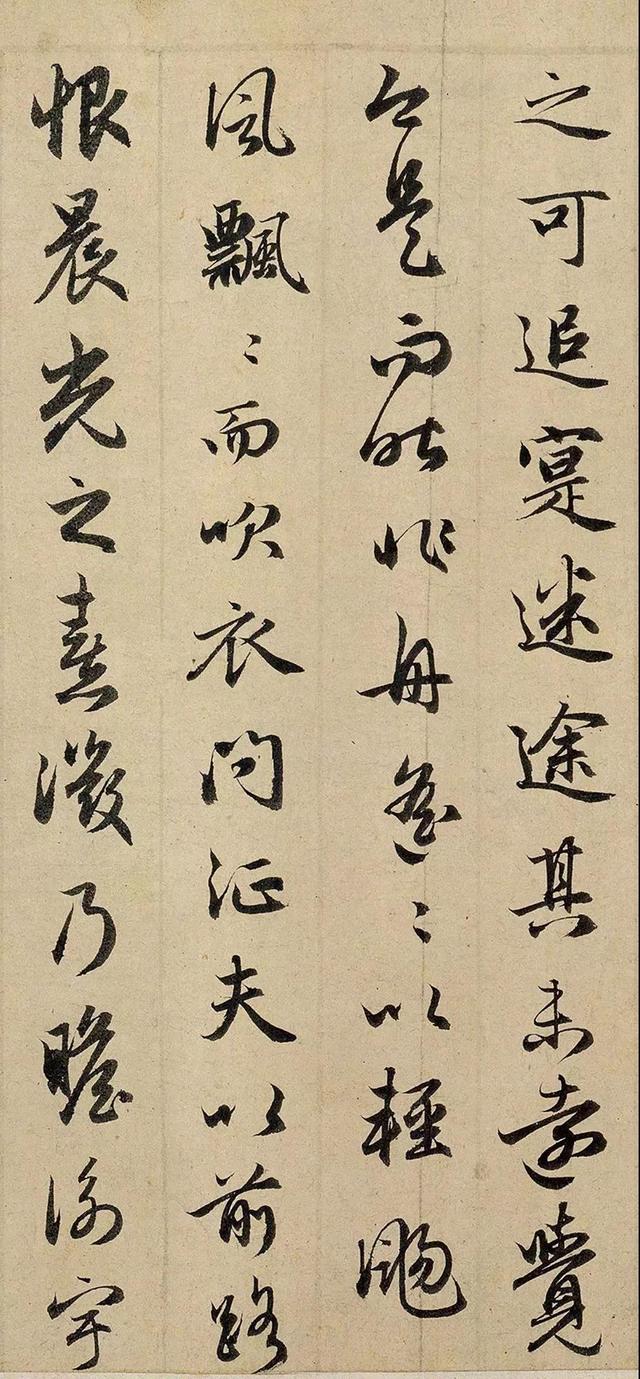 之可追寔迷途其未遠覺
今是而昨非舟遙〻以輕颺
風飄〻而吹衣問征夫以前路
恨晨光之熹微乃瞻衡宇